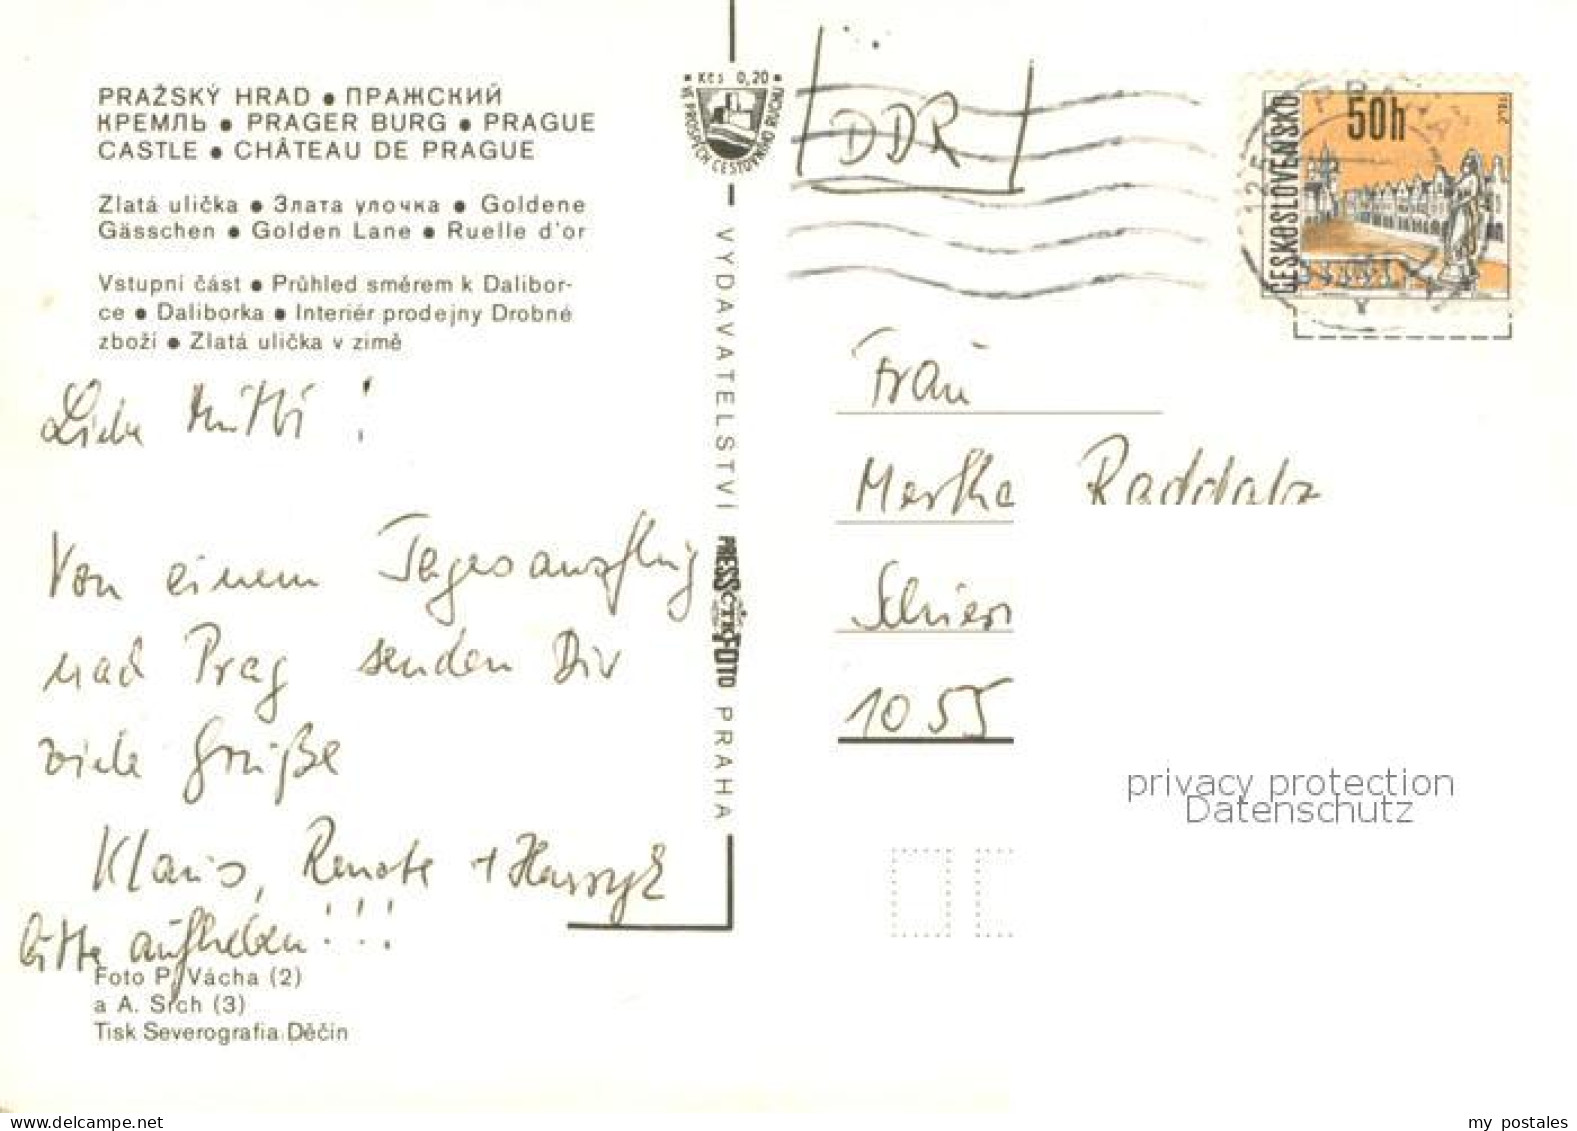 PRAŽSKÝ HRAD • ПРАЖСКИЙ
КРЕМЛЬ • PRAGER BURG • PRAGUE
CASTLE • CHÂTEAU DE PRAGUE
Zlatá ulička • Злата улочка • Goldene
Gässchen • Golden Lane • Ruelle d'or
Vstupní část • Průhled směrem k Dalibor-
ce • Daliborka • Interiér prodejny Drobné
zboží • Zlatá ulička v zimě
Liebe Mutti!
Von einem Tagesausflug
nach Prag senden Dir
viele Grüße
Klaus, Renate +
bitte aufheben!!!
Foto P. Vácha (2)
a A. Srch (3)
Tisk Severografia Děčín
Kčs 0,20
VE PROSPĚCH CESTOVNÍHO RUCHU
VYDAVATELSTVÍ PRESSFOTO PRAHA
ČTK
DDR
ČESKOSLOVENSKO
50h
TELČ
PRAHA
Frau
Raddatz
Schier
1055
privacy protection
Datenschutz
my postales